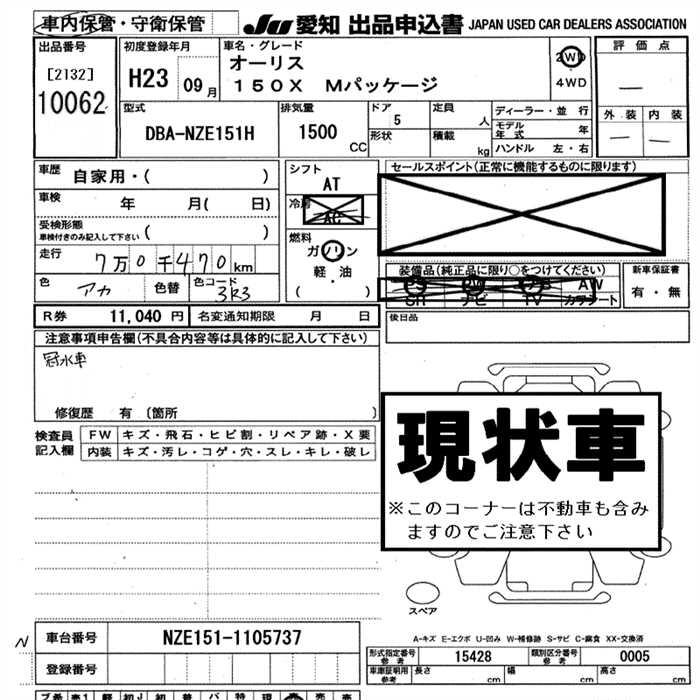 車内保管・守衛保管
JU 愛知 出品申込書 JAPAN USED CAR DEALERS ASSOCIATION
出品番号 [2132] 10062
初度登録年月 H23 09月
車名・グレード オーリス
150X Mパッケージ
2WD
4WD
評価点 —
外装 — 内装 —
型式 DBA-NZE151H
排気量 1500 CC
ドア 5
形状
定員 人
積載 kg
ディーラー・並行
モデル年式 年
ハンドル 左・右
車歴 自家用・( )
車検 年 月( 日)
受検形態
車検付きのみ記入して下さい ( )
走行 7万0千470km
色 アカ 色替 色コード 3R3
シフト AT
冷房 AC
燃料 ガソリン
軽・油
( )
セールスポイント(正常に機能するものに限ります)
装備品(純正品に限り○をつけてください)
PS PW AB AW
SR ナビ TV カワシート
新車保証書
有・無
R券 11,040 円 名変通知期限 月 日
後日品
注意事項申告欄(不具合内容等は具体的に記入して下さい)
冠水車
修復歴 有 〔箇所 〕
検査員記入欄
FW キズ・飛石・ヒビ割・リペア跡・X要
内装 キズ・汚レ・コゲ・穴・スレ・キレ・破レ
現状車
※このコーナーは不動車も含み
ますのでご注意下さい
スペア
A-キズ E-エクボ U-凹み W-補修跡 S-サビ C-腐食 XX-交換済
N
車台番号 NZE151-1105737
登録番号
形式指定番号 参考 15428 類別区分番号 参考 0005
車庫証明用 参考 長さ cm 幅 cm 高さ cm